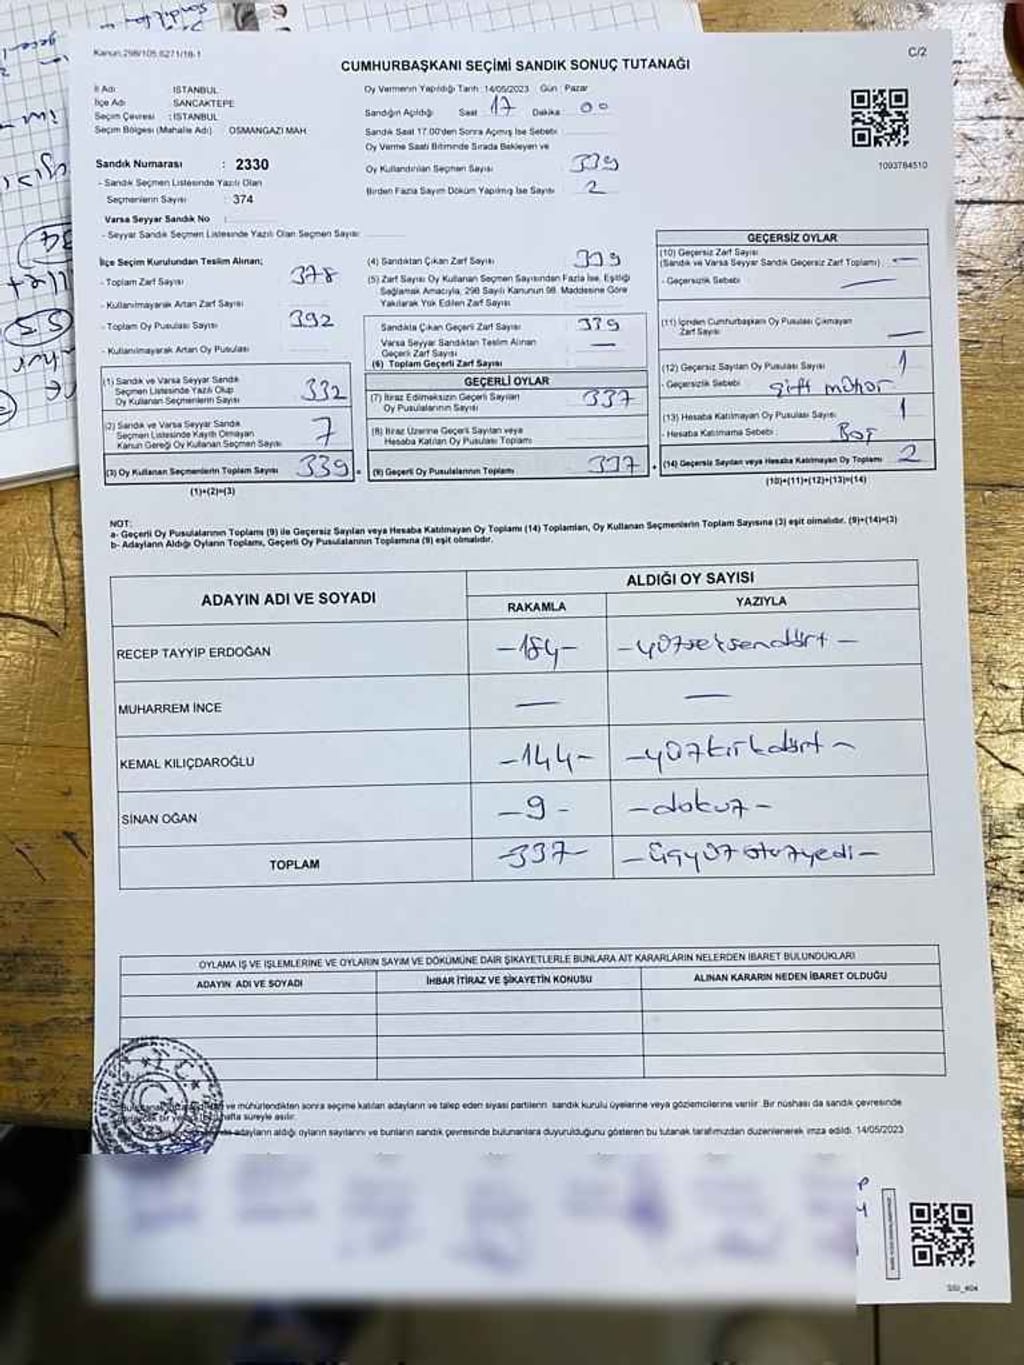 Kanun:298/105.6271/18-1
C/2
CUMHURBAŞKANI SEÇİMİ SANDIK SONUÇ TUTANAĞI
İl Adı İSTANBUL
İlçe Adı SANCAKTEPE
Seçim Çevresi : İSTANBUL
Seçim Bölgesi (Mahalle Adı) OSMANGAZİ MAH.
Sandık Numarası : 2330
- Sandık Seçmen Listesinde Yazılı Olan
Seçmenlerin Sayısı : 374
Varsa Seyyar Sandık No :
- Seyyar Sandık Seçmen Listesinde Yazılı Olan Seçmen Sayısı
Oy Vermenin Yapıldığı Tarih : 14/05/2023 Gün : Pazar
Sandığın Açıldığı Saat 17 Dakika 00
Sandık Saat 17.00'den Sonra Açılmış İse Sebebi
Oy Verme Saati Bitiminde Sırada Bekleyen ve
Oy Kullandırılan Seçmen Sayısı 339
Birden Fazla Sayım Döküm Yapılmış İse Sayısı 2
1093784510
İlçe Seçim Kurulundan Teslim Alınan;
- Toplam Zarf Sayısı 378
- Kullanılmayarak Artan Zarf Sayısı
- Toplam Oy Pusulası Sayısı 392
- Kullanılmayarak Artan Oy Pusulası
(1) Sandık ve Varsa Seyyar Sandık
Seçmen Listesinde Yazılı Olup
Oy Kullanan Seçmenlerin Sayısı 332
(2) Sandık ve Varsa Seyyar Sandık
Seçmen Listesinde Kayıtlı Olmayan
Kanun Gereği Oy Kullanan Seçmen Sayısı 7
(3) Oy Kullanan Seçmenlerin Toplam Sayısı 339 =
(1)+(2)=(3)
(4) Sandıktan Çıkan Zarf Sayısı 339
(5) Zarf Sayısı Oy Kullanan Seçmen Sayısından Fazla İse, Eşitliği
Sağlamak Amacıyla, 298 Sayılı Kanunun 98. Maddesine Göre
Yakılarak Yok Edilen Zarf Sayısı
Sandıkta Çıkan Geçerli Zarf Sayısı 339
Varsa Seyyar Sandıktan Teslim Alınan
Geçerli Zarf Sayısı —
(6) Toplam Geçerli Zarf Sayısı
GEÇERLİ OYLAR
(7) İtiraz Edilmeksizin Geçerli Sayılan
Oy Pusulalarının Sayısı 337
(8) İtiraz Üzerine Geçerli Sayılan veya
Hesaba Katılan Oy Pusulası Toplamı
(9) Geçerli Oy Pusulalarının Toplamı 337 +
GEÇERSİZ OYLAR
(10) Geçersiz Zarf Sayısı
(Sandık ve Varsa Seyyar Sandık Geçersiz Zarf Toplamı) —
- Geçersizlik Sebebi —
(11) İçinden Cumhurbaşkanı Oy Pusulası Çıkmayan
Zarf Sayısı —
(12) Geçersiz Sayılan Oy Pusulası Sayısı 1
- Geçersizlik Sebebi çift mühür
(13) Hesaba Katılmayan Oy Pusulası Sayısı 1
- Hesaba Katılmama Sebebi : Boş
(14) Geçersiz Sayılan veya Hesaba Katılmayan Oy Toplamı 2
(10)+(11)+(12)+(13)=(14)
NOT:
a- Geçerli Oy Pusulalarının Toplamı (9) ile Geçersiz Sayılan veya Hesaba Katılmayan Oy Toplamı (14) Toplamları, Oy Kullanan Seçmenlerin Toplam Sayısına (3) eşit olmalıdır. (9)+(14)=(3)
b- Adayların Aldığı Oyların Toplamı, Geçerli Oy Pusulalarının Toplamına (9) eşit olmalıdır.
ADAYIN ADI VE SOYADI ALDIĞI OY SAYISI
RAKAMLA YAZIYLA
RECEP TAYYİP ERDOĞAN -184- -yüzseksendört-
MUHARREM İNCE — —
KEMAL KILIÇDAROĞLU -144- -yüzkırkdört-
SİNAN OĞAN -9- -dokuz-
TOPLAM -337- -üçyüzotuzyedi-
OYLAMA İŞ VE İŞLEMLERİNE VE OYLARIN SAYIM VE DÖKÜMÜNE DAİR ŞİKAYETLERLE BUNLARA AİT KARARLARIN NELERDEN İBARET BULUNDUKLARI
ADAYIN ADI VE SOYADI İHBAR İTİRAZ VE ŞİKAYETİN KONUSU ALINAN KARARIN NEDEN İBARET OLDUĞU
ve mühürlendikten sonra seçime katılan adayların ve talep eden siyasi partilerin sandık kurulu üyelerine veya gözlemcilerine verilir. Bir nüshası da sandık çevresinde
hafta süreyle asılır.
adayların aldığı oyların sayılarını ve bunların sandık çevresinde bulunanlara duyurulduğunu gösteren bu tutanak tarafımızdan düzenlenerek imza edildi. 14/05/2023